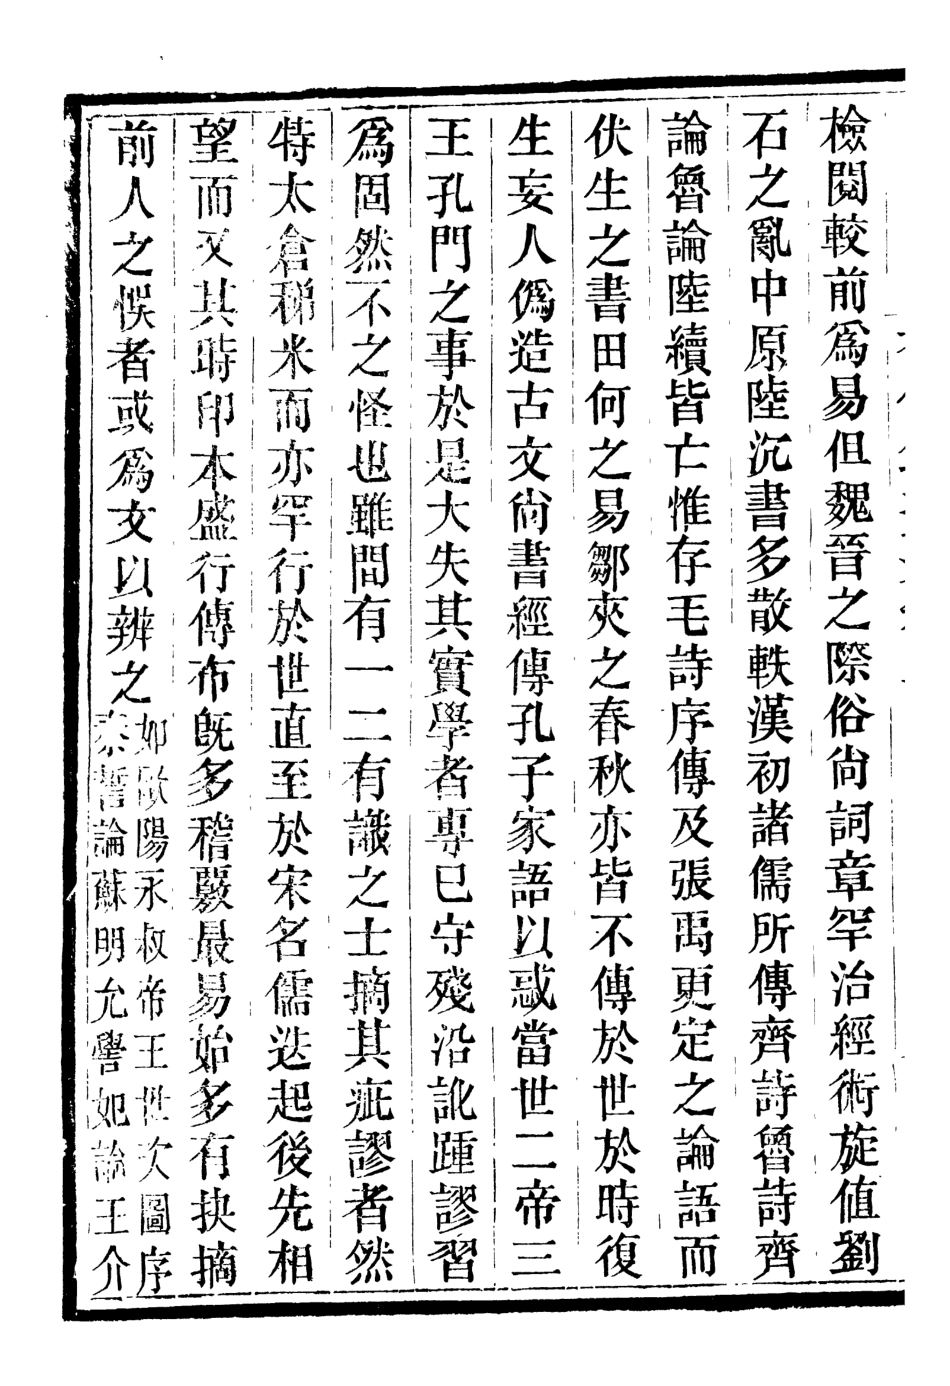 檢閱較前爲易但魏晉之際俗尙詞章罕治經術旋值劉
石之亂中原陸沉書多散軼漢初諸儒所傳齊詩魯詩齊
論魯論陸續皆亡惟存毛詩序傳及張禹更定之論語而
伏生之書田何之易鄒夾之春秋亦皆不傳於世於時復
生妄人僞造古文尙書經傳孔子家語以惑當世二帝三
王孔門之事於是大失其實學者專己守殘沿訛踵謬習
爲固然不之怪也雖間有一二有識之士摘其疵謬者然
特太倉稊米而亦罕行於世直至於宋名儒迭起後先相
望而又其時印本盛行傳布旣多稽覈最易始多有抉摘
前人之悞者或爲文以辨之
如歐陽永叔帝王世次圖序
泰誓論蘇明允嚳妃論王介